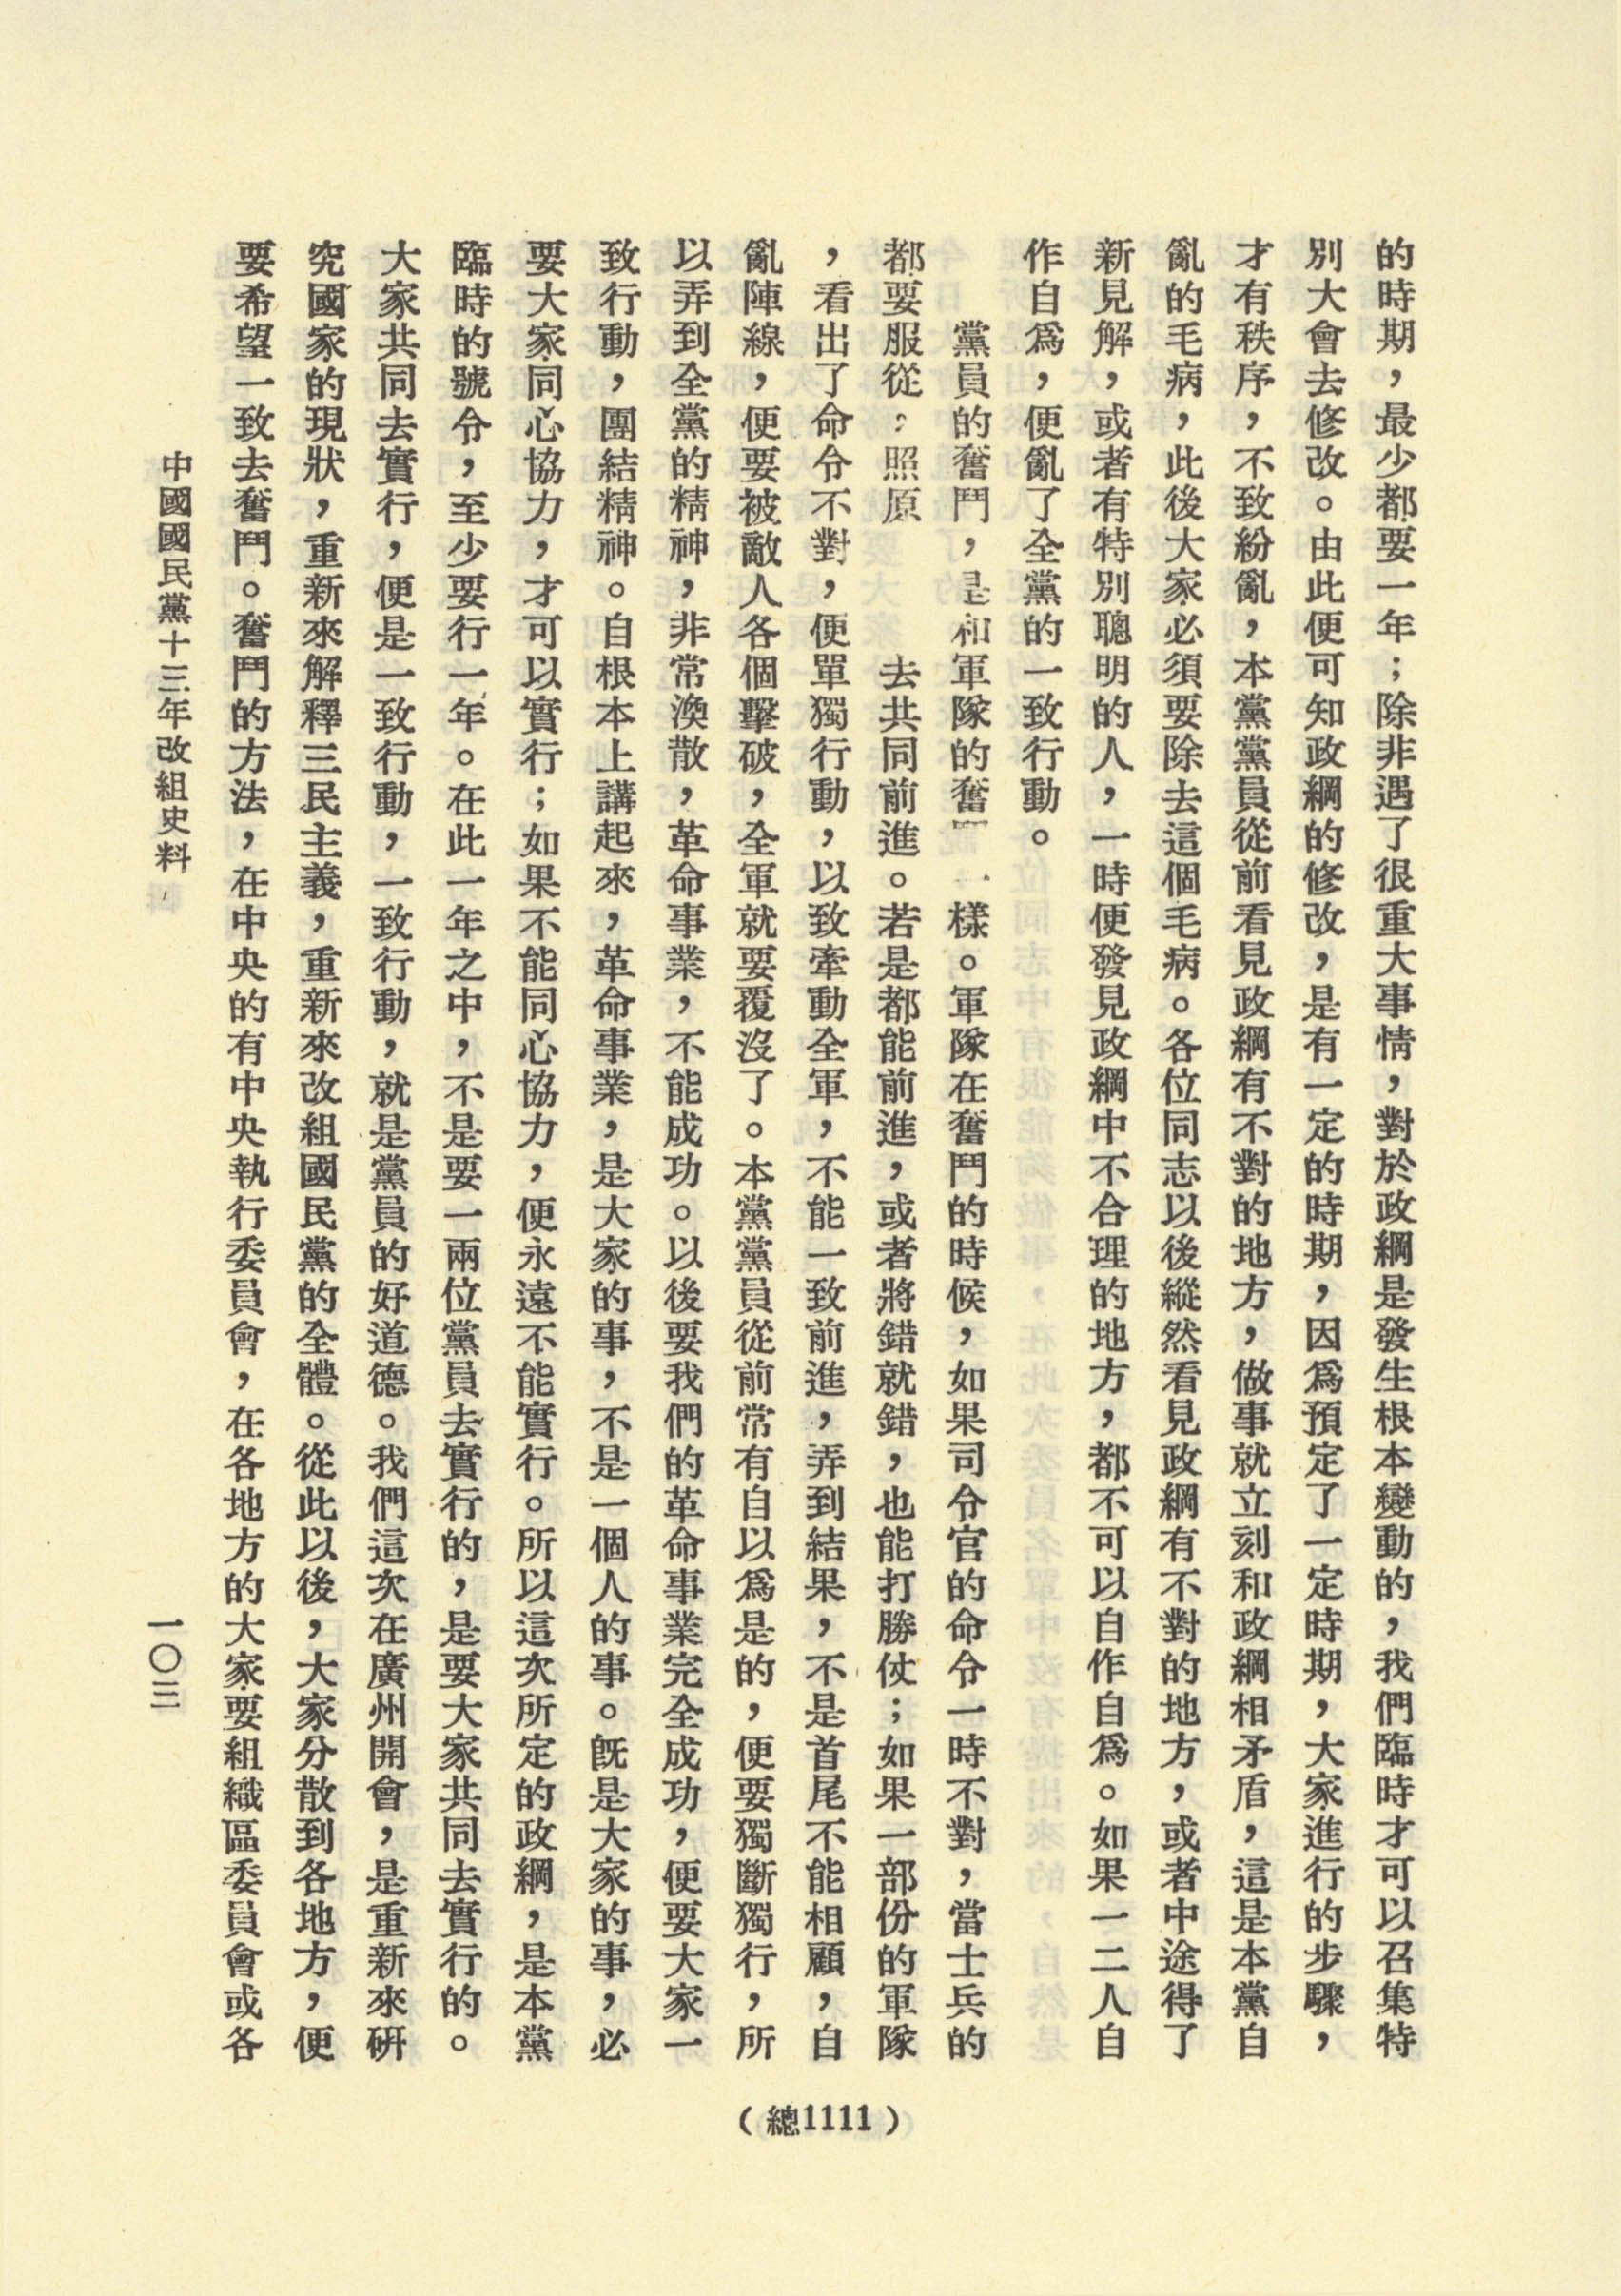 的時期，最少都要一年；除非遇了很重大事情，對於政綱是發生根本變動的，我們臨時才可以召集特
別大會去修改。由此便可知政綱的修改，是有一定的時期，因爲預定了一定時期，大家進行的步驟，
才有秩序，不致紛亂，本黨黨員從前看見政綱有不對的地方，做事就立刻和政綱相矛盾，這是本黨自
亂的毛病，此後大家必須要除去這個毛病。各位同志以後縱然看見政綱有不對的地方，或者中途得了
新見解，或者有特別聰明的人，一時便發見政綱中不合理的地方，都不可以自作自爲。如果一二人自
作自爲，便亂了全黨的一致行動。
黨員的奮鬥，是和軍隊的奮 一樣。軍隊在奮鬥的時候，如果司令官的命令一時不對，當士兵的
都要服從，照原 去共同前進。若是都能前進，或者將錯就錯，也能打勝仗；如果一部份的軍隊
，看出了命令不對，便單獨行動，以致牽動全軍，不能一致前進，弄到結果，不是首尾不能相顧，自
亂陣線，便要被敵人各個擊破，全軍就要覆沒了。本黨黨員從前常有自以爲是的，便要獨斷獨行，所
以弄到全黨的精神，非常渙散，革命事業，不能成功。以後要我們的革命事業完全成功，便要大家一
致行動，團結精神。自根本上講起來，革命事業，是大家的事，不是一個人的事。旣是大家的事，必
要大家同心協力，才可以實行；如果不能同心協力，便永遠不能實行。所以這次所定的政綱，是本黨
臨時的號令，至少要行一年。在此一年之中，不是要一兩位黨員去實行的，是要大家共同去實行的。
大家共同去實行，便是一致行動，一致行動，就是黨員的好道德。我們這次在廣州開會，是重新來研
究國家的現狀，重新來解釋三民主義，重新來改組國民黨的全體。從此以後，大家分散到各地方，便
要希望一致去奮鬥。奮鬥的方法，在中央的有中央執行委員會，在各地方的大家要組織區委員會或各
中國國民黨十三年改組史料
一〇三
（總1111）